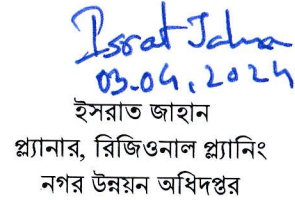 Israt Jahan
03.04.2024
ইসরাত জাহান
প্ল্যানার, রিজিওনাল প্ল্যানিং
নগর উন্নয়ন অধিদপ্তর